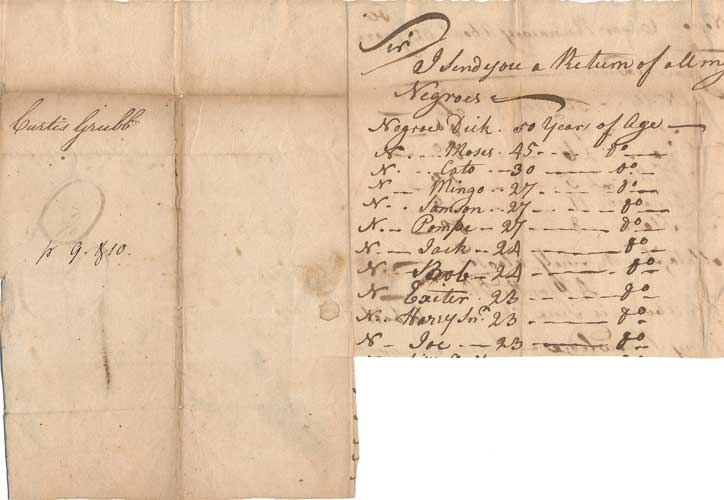 Curtis Grubb
p 9. & 10.
Sir
I send you a Return of all my
Negroes
Negroe Dick 50 Years of Age
N. Moses 45 Do
N. Cato 30 Do
N Mingo 27 Do
N. Samson 27 Do
N. Pompe 27 Do
N Jack 24 Do
N Bob 24 Do
N Exiter 23 Do
N. Harry Jnr. 23 Do
N Joe 23 Do